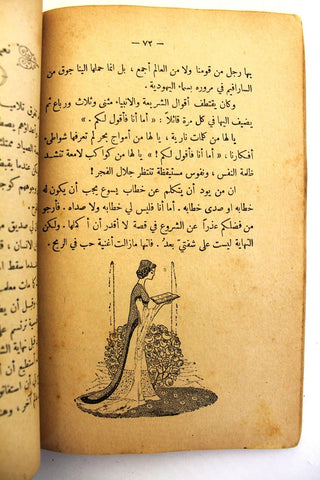 — ٧٢ —
بها رجل من قومنا ولا من العالم أجمع ، بل انما حملها الينا جوق من
السارافيم في مروره بسماء اليهودية .
وكان يقتطف أقوال الشريعة والانبياء مثنى وثلاث ورباع ثم
يضيف اليها في كل مرة قائلاً : « أما أنا فأقول لكم ! »
يا لها من كلمات نارية ، يا لها من أمواج بحر لم تعرفها شواطىء
أفكارنا ، « أما أنا فأقول لكم ! » يا لها من كواكب لامعة تنشد
ظلمة النفس ، ونفوس مستيقظة تنتظر جلال الفجر !
ان من يود أن يتكلم عن خطاب يسوع يجب أن يكون له
خطابه او صدى خطابه . أما أنا فليس لي خطابه ولا صداه . فأرجو
من فضلكم عذراً عن الشروع في قصة لا أقدر أن أكملها . ولكن
النهاية ليست على شفتيّ بعدُ . فانها مازالت أغنية حب في الريح .